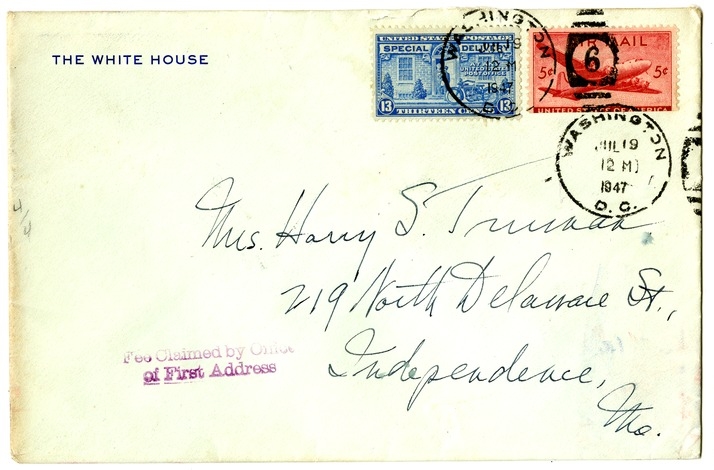 THE WHITE HOUSE
UNITED STATES POSTAGE
SPECIAL DELIVERY
UNITED STATES
POST OFFICE
13 THIRTEEN CENTS 13
AIR MAIL
5¢ 5¢
UNITED STATES OF AMERICA
WASHINGTON
JUL 19
12 M
1947
D.C.
6
WASHINGTON
JUL 19
12 M
1947
D. C.
4/4
Mrs. Harry S. Truman
219 North Delaware St.,
Independence,
Mo.
Fee Claimed by Office
of First Address